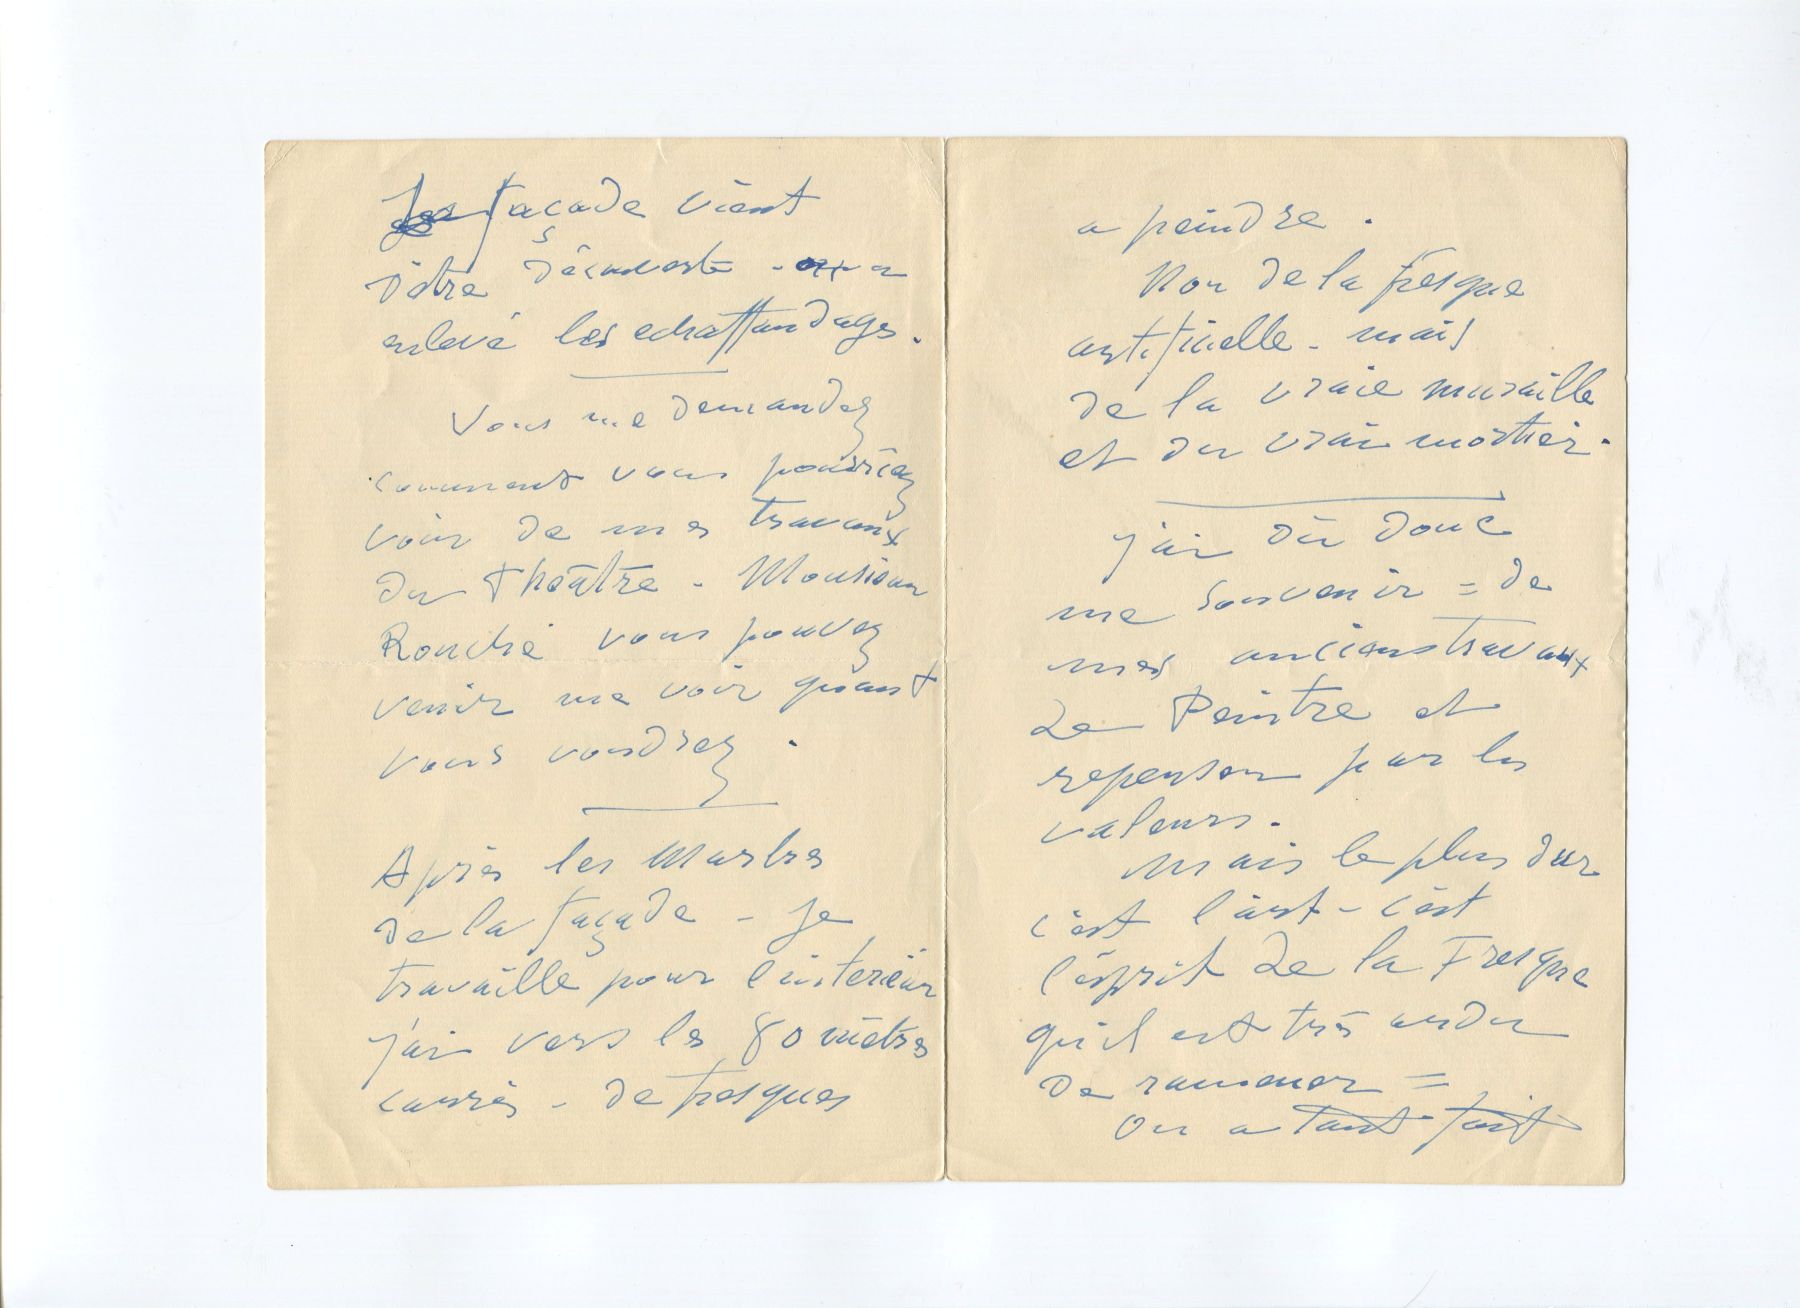 La façade vient
d'être découverte - on a
enlevé les echaffaudages.
Vous me demandez
comment vous pourriez
voir de mes travaux
du Théâtre - Monsieur
Rouché vous pouvez
venir me voir quant
vous voudrez.
Après les Marbres
de la façade - je
travaille pour l'interieur
j'ai vers les 80 mètres
carrés - de fresques
a peindre.
Non de la fresque
artificielle - mais
de la vraie muraille
et du vrai mortier.
j'ai dû donc
me souvenir = de
mes anciens travaux
de Peintre et
repenser par les
valeurs.
Mais le plus dur
c'est l'art - c'est
l'esprit de la Fresque
qu'il est très ardu
de ramener =
on a tant fait